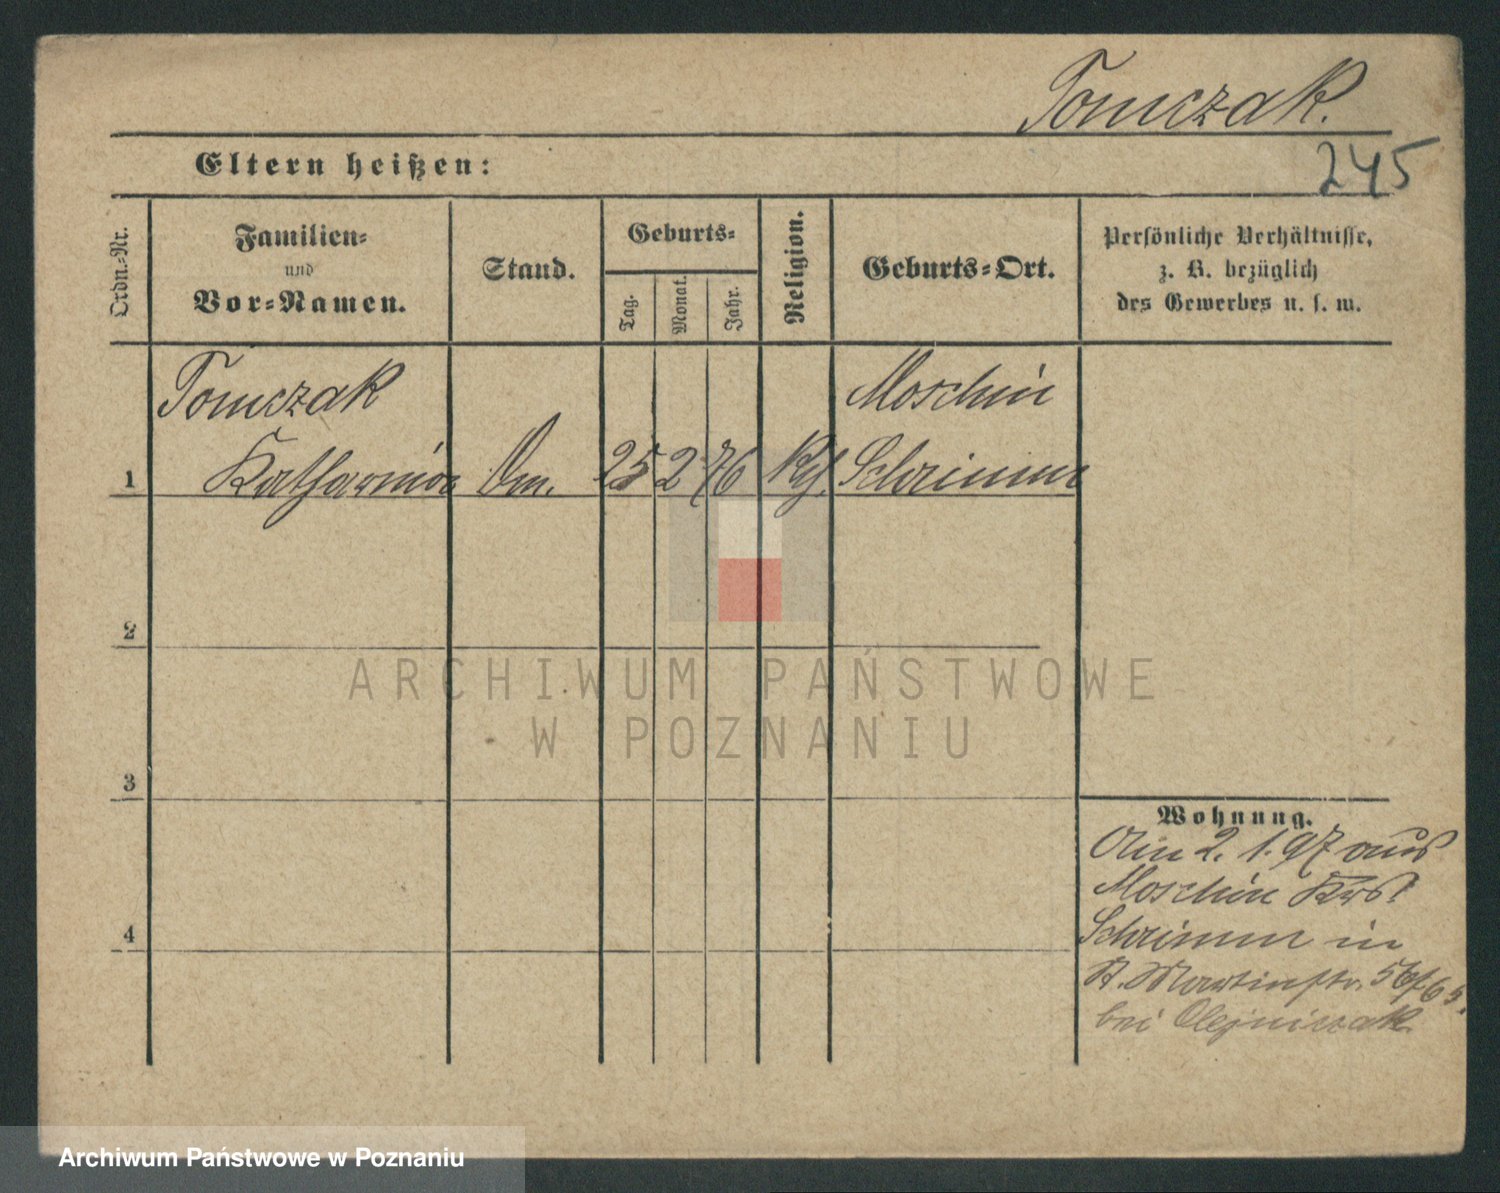 Tomczak.
Eltern heißen:
245
Ordn.-Nr.
Familien-
und
Vor-Namen.
Stand.
Geburts-
Tag.
Monat.
Jahr.
Religion.
Geburts-Ort.
Persönliche Verhältnisse,
z. B. bezüglich
des Gewerbes u. s. w.
Tomczak
Moschin
1 Katharina 25 2 76 Schrimm
2
ARCHIWUM PAŃSTWOWE
W POZNANIU
3
Wohnung.
Am 2. 1. 97 aus
Moschin
4
Schrimm in
St. Martinstr.
bei Olejniczak
Archiwum Państwowe w Poznaniu